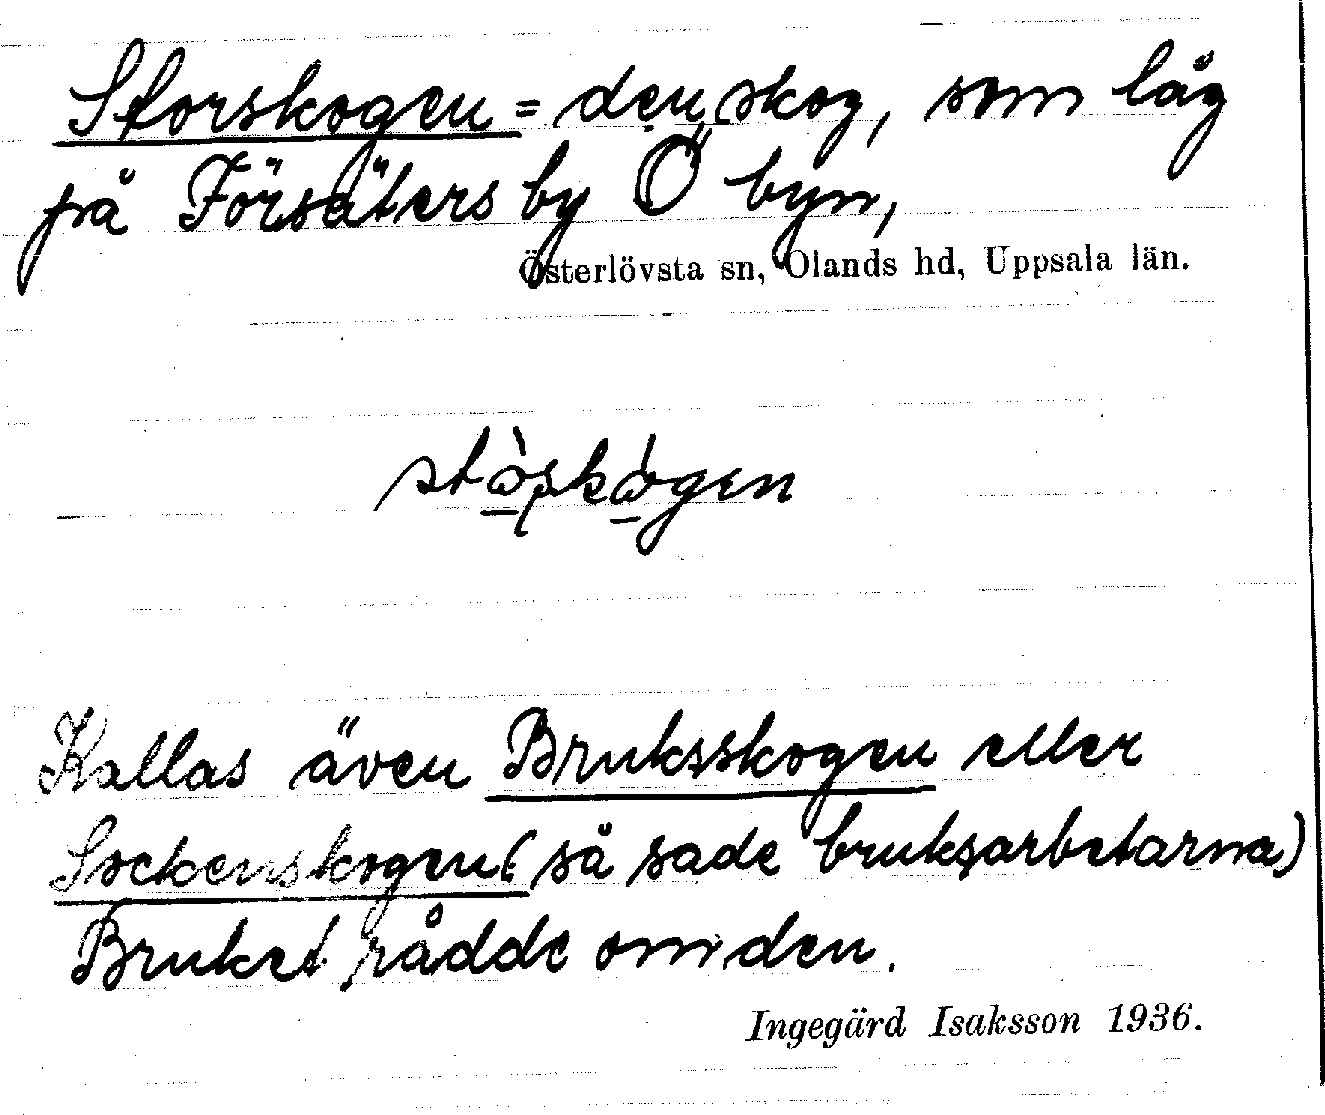 Storskogen = den skog, som låg
på Försäters by Ö byn,
Österlövsta sn, Olands hd, Uppsala län.
Kallas även Bruksskogen eller
Sockenskogen (så sade bruksarbetarna)
Bruket rådde om den.
Ingegärd Isaksson 1936.